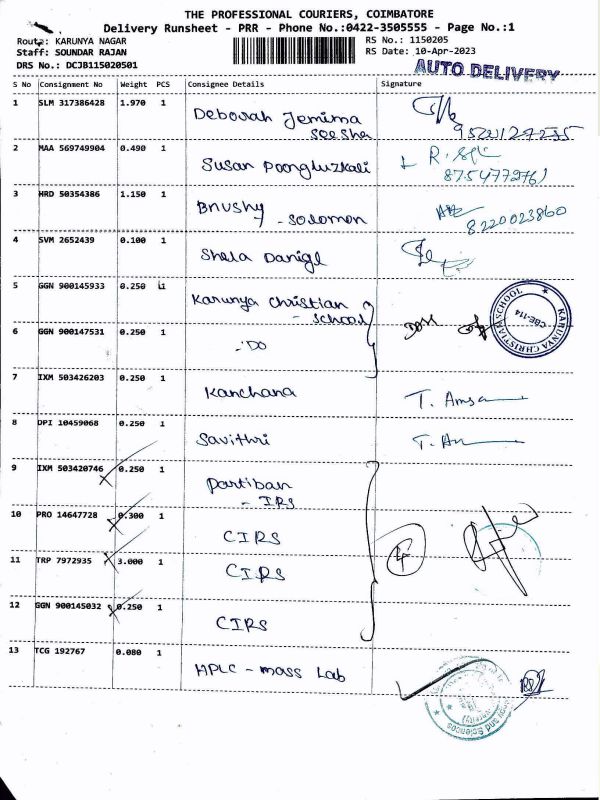 THE PROFESSIONAL COURIERS, COIMBATORE
Delivery Runsheet - PRR - Phone No.:0422-3505555 - Page No.:1
Route: KARUNYA NAGAR
RS No.: 1150205
Staff: SOUNDAR RAJAN
RS Date: 10-Apr-2023
DRS No.: DCJB115020501
AUTO DELIVERY
S No Consignment No Weight PCS Consignee Details Signature
1 SLM 317386428 1.970 1 Deborah Jemima
Seesha
2 MAA 569749904 0.490 1 Susan Poongluzkali
3 HRD 50354386 1.150 1 Bnushy
- Solomon
8220023860
4 SVM 2652439 0.100 1 Shela Daniel
5 GGN 900145933 0.250 1 Karunya Christian
- School
KARUNYA CHRISTIAN SCHOOL
CBE-114
6 GGN 900147531 0.250 1 -"DO
7 IXM 503426203 0.250 1 Kanchana
T. Amsa
8 DPI 10459068 0.250 1 Savithri
9 IXM 503420746 0.250 1 Partiban
- IRS
10 PRO 14647728 0.300 1 CIRS
11 TRP 7972935 3.000 1 CIRS
12 GGN 900145032 0.250 1 CIRS
13 TCG 192767 0.080 1 HPLC - mass Lab